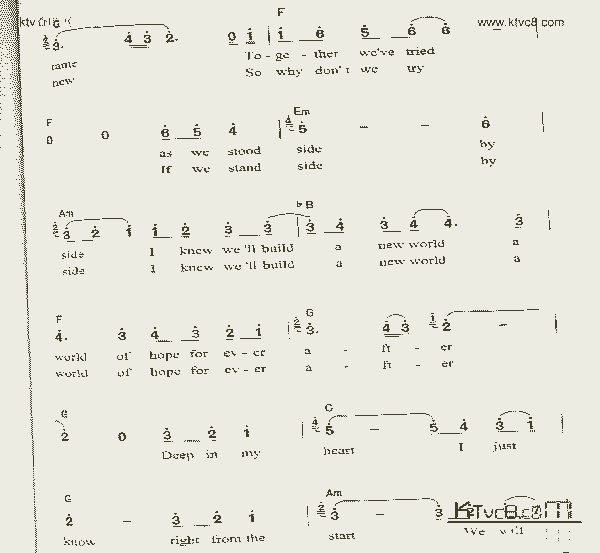 www.ktvc8.com
G F
3. 4 3 2. 0 1 1 6 5 6 6
To - ge - ther we've tried
new So why don't we try
F Em
0 0 6 5 4 5 – – 6
as we stood side by
If we stand side by
Am ♭B
3 2 1 1 2 3 3 3 4 3 4 4. 3
side I knew we'll build a new world a
side I knew we'll build a new world a
F G
4. 3 4 3 2 1 3. 4 3 2 –
world of hope for ev - er a - ft - er
world of hope for ev - er a - ft - er
G G
2 0 3 2 1 5 – 5 4 3 1
Deep in my heart I just
G Am
2 – 3 2 1 3 – 3
know right from the start We will
KTvc8.com